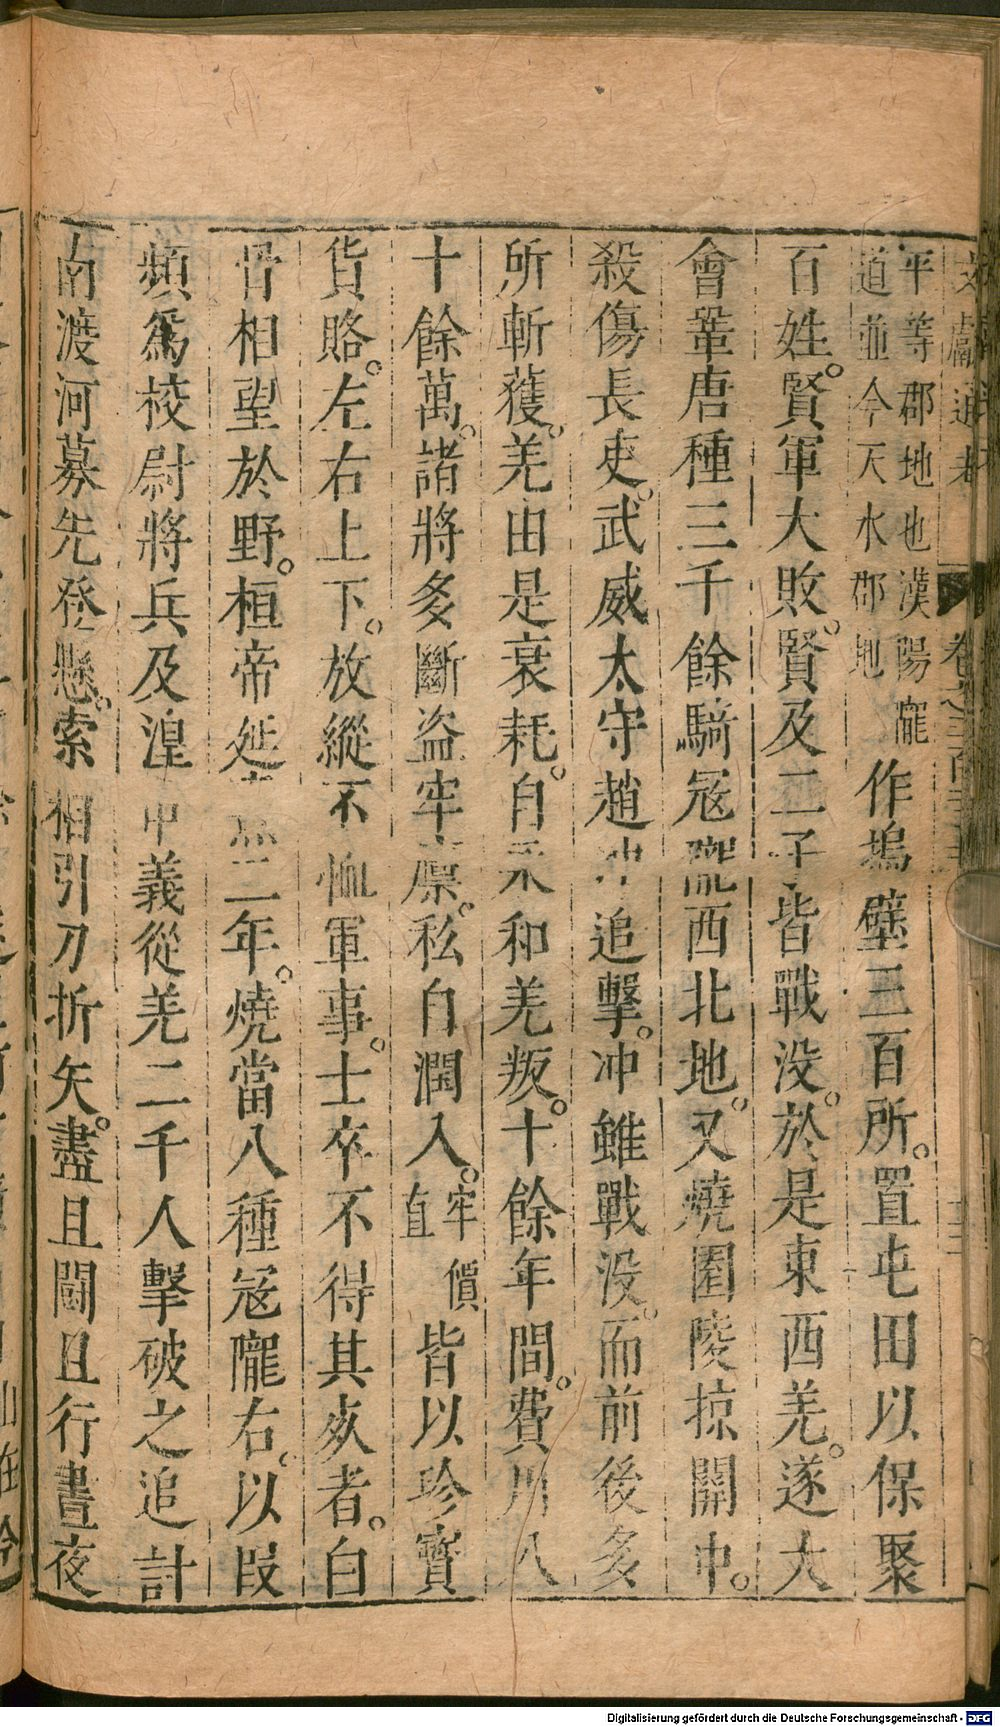 文獻通考 卷之三百三十三 十二
平等郡地也漢陽隴
道並今天水郡地
作塢壁三百所。置屯田以保聚
百姓。賢軍大敗。賢及二子皆戰没。於是東西羌。遂大
會鞏唐種三千餘騎冦隴西北地。又燒園陵掠關中。
殺傷長吏。武威太守趙冲追擊。冲雖戰没。而前後多
所斬獲。羌由是衰耗。自永和羌叛。十餘年間。費用八
十餘萬。諸將多斷盜牢廪。私自潤入。
牢價
直
皆以珍寳
貨賂。左右上下。放縱不恤軍事。士卒不得其死者。白
骨相望於野。桓帝延熹二年。燒當八種冦隴右。以段
熲爲校尉將兵及湟中義從羌二千人擊破之追討
南渡河募先登懸。索相引刀折矢。盡且鬬且行晝夜
Digitalisierung gefördert durch die Deutsche Forschungsgemeinschaft - DFG